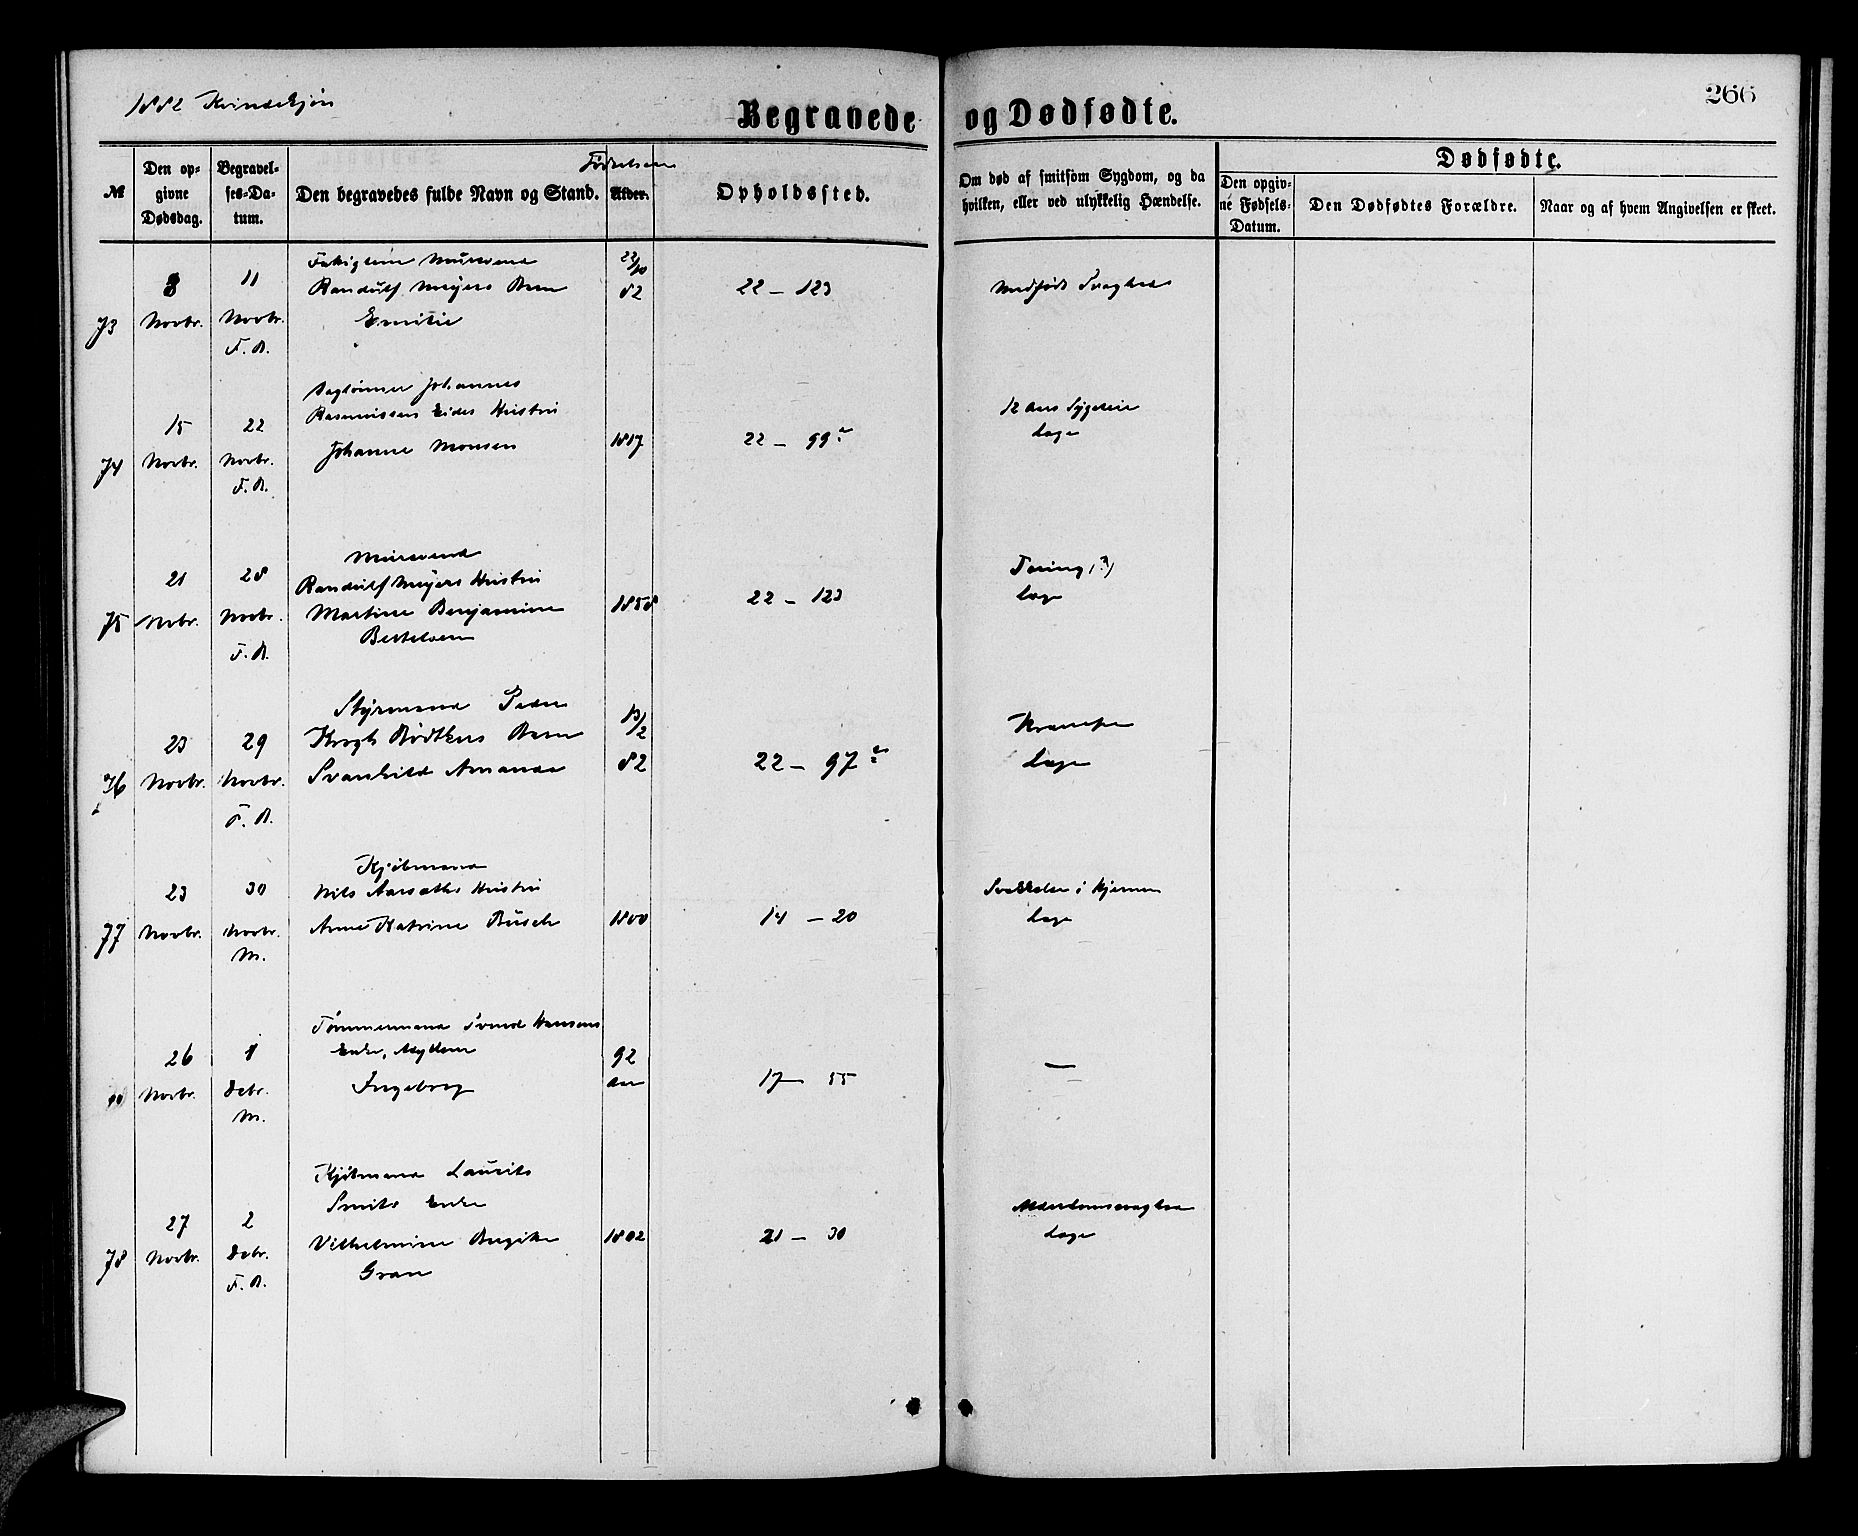 1882 Kvindekjøn
Begravede og Dødfødte.
266
№
Den opgivne Dødsdag.
Begravelses-Datum.
Den begravedes fulde Navn og Stand.
Fødselsaar
Alder.
Opholdssted.
Om død af smitsom Sygdom, og da hvilken, eller ved ulykkelig Hændelse.
Dødfødte.
Den opgivne Fødsels-Datum.
Den Dødfødtes Forældre.
Naar og af hvem Angivelsen er skeet.
73
8 Novbr.
11 Novbr. F. A.
Murersvend
Randulf Meyers Barn
Emilie
22/10 82
22 – 123
Medfødt Svaghed
74
15 Novbr.
22 Novbr. F. A.
Daglønner Johannes
Rasmussen Eides Hustru
Johanne Monsen
1817
22 – 99a
12 Aars Sygeleie
Læge
75
21 Novbr.
28 Novbr. F. A.
Murersvend
Randulf Meyers Hustru
Martine Benjamine
Bertelsen
1858
22 – 123
Tæring (?)
Læge
76
23 Novbr.
29 Novbr. F. A.
Styrmand Peder
Krogh Bødtkers Barn
Svanhild Amanda
13/2 82
22 – 97a
Krampe
Læge
77
23 Novbr.
30 Novbr. M.
Kjøbmand
Nils Aarsæths Hustru
Anne Katrine Busch
1800
14 – 20
Svækkelse i Hjernen
Læge
26 Novbr.
1 Debr. M.
Tømmermand Svend Hansens
Enke,
Ingeborg
92 Aar
17 – 55
—
78
27 Novbr.
2 Debr. F. A.
Kjøbmand Laurits
Smits Enke
Vilhelmine Birgitte
Gran
1802
21 – 30
Alderdomssvaghed
Læge